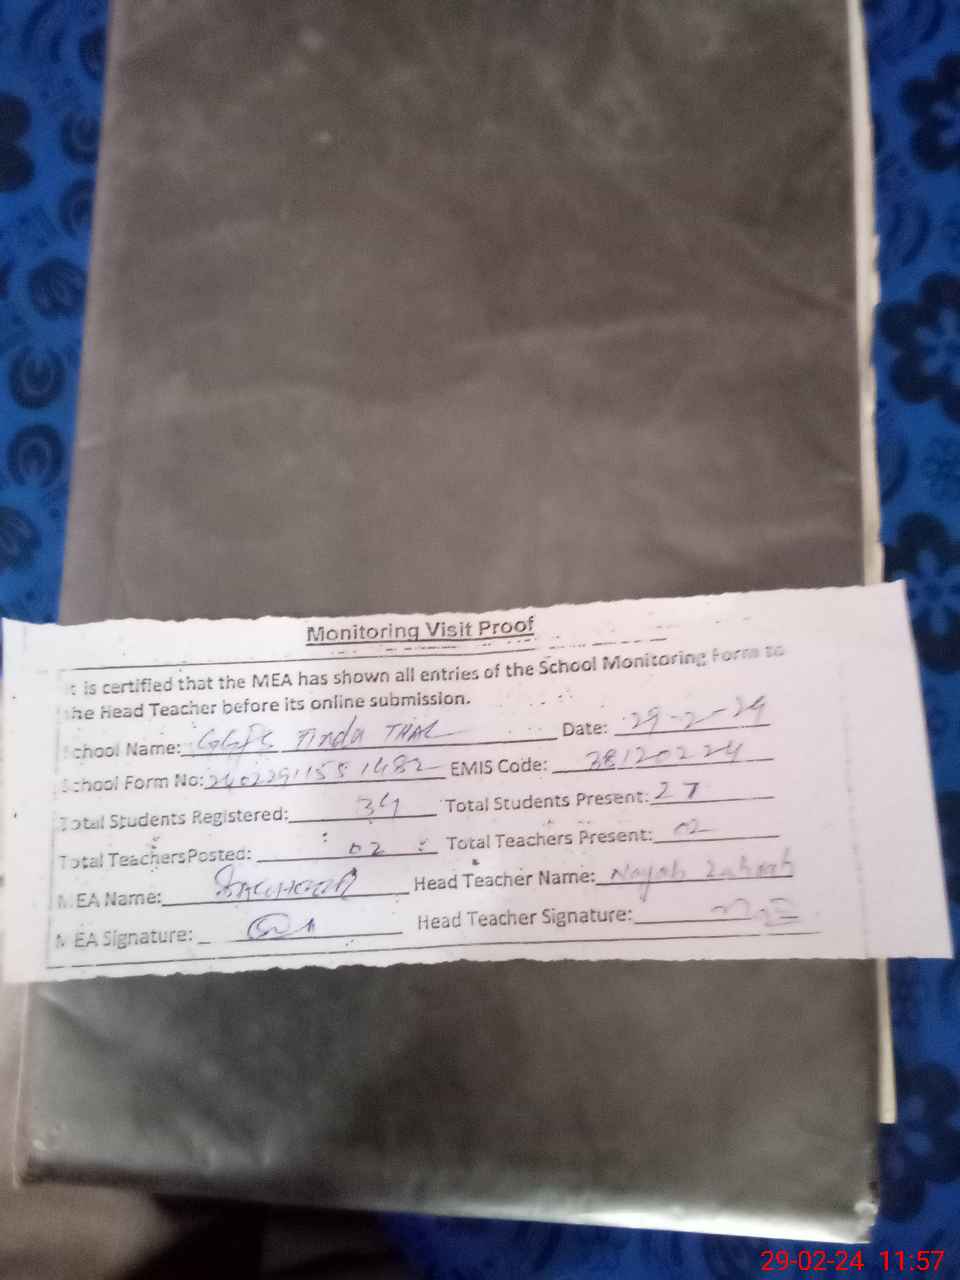 Monitoring Visit Proof
It is certified that the MEA has shown all entries of the School Monitoring Form to
the Head Teacher before its online submission.
School Name: GGPS Tinda THAL Date: 29-2-24
School Form No: 2402291155 1482 EMIS Code: 38120224
Total Students Registered: 34 Total Students Present: 27
Total Teachers Posted: 02 Total Teachers Present: 02
MEA Name: Head Teacher Name:
MEA Signature: Head Teacher Signature:
29-02-24 11:57